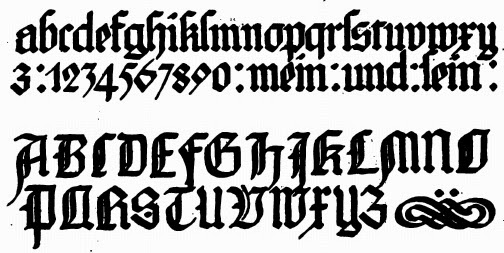 abcdefghiklmnopqrſstuvwxy
z:1234567890:mein:und:ſein:
ABCDEFGHJKLMNO
PQRSTUVWXYZ